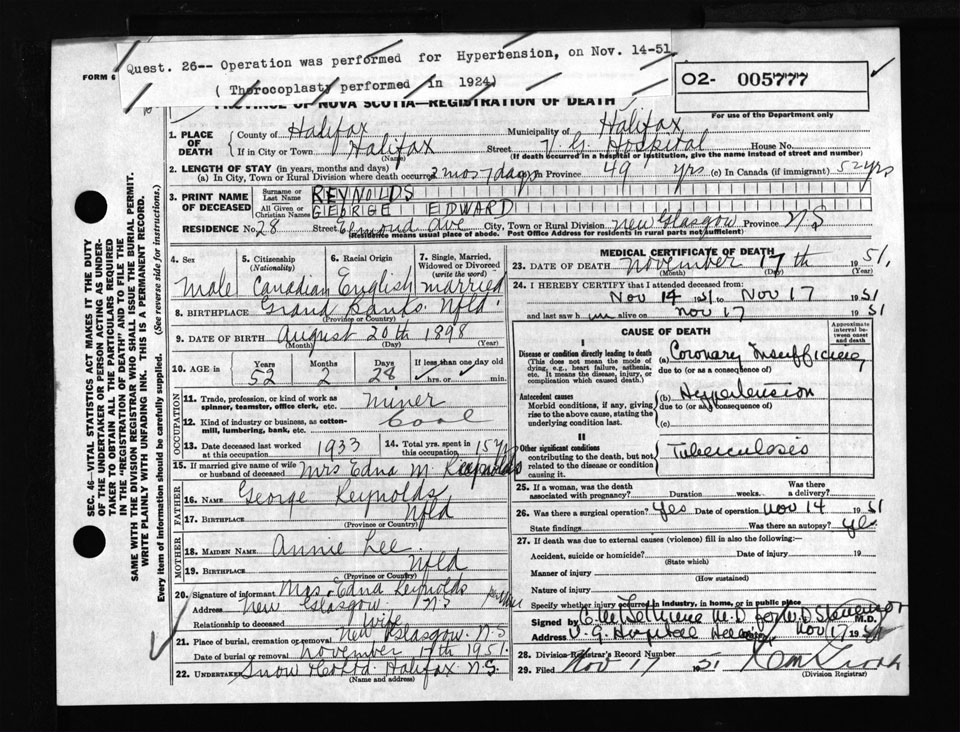 Quest. 26-- Operation was performed for Hypertension, on Nov. 14-51
( Thorocoplasty performed in 1924)
FORM 6
O2- 005777
For use of the Department only
PROVINCE OF NOVA SCOTIA—REGISTRATION OF DEATH
1. PLACE OF DEATH { County of Halifax Municipality of Halifax
If in City or Town Halifax (Name) Street V. G. Hospital House No.
(If death occurred in a hospital or institution, give the name instead of street and number)
2. LENGTH OF STAY (in years, months and days)
(a) In City, Town or Rural Division where death occurred 2 mos 7 days in Province 49 yrs (c) In Canada (if immigrant) 52 yrs
3. PRINT NAME OF DECEASED { Surname or Last Name REYNOLDS
All Given or Christian Names GEORGE EDWARD
RESIDENCE No. 28 Street Ave City, Town or Rural Division New Glasgow Province N S
(Residence means usual place of abode. Post Office Address for residents in rural parts not sufficient)
4. Sex Male
5. Citizenship (Nationality) Canadian
6. Racial Origin English
7. Single, Married, Widowed or Divorced (write the word) married
8. BIRTHPLACE Grand Banks. Nfld
(Province or Country)
9. DATE OF BIRTH August 20th 1898
(Month) (Day) (Year)
10. AGE in { Years 52 Months 2 Days 28 If less than one day old hrs. or min.
OCCUPATION
11. Trade, profession, or kind of work as spinner, teamster, office clerk, etc. miner
12. Kind of industry or business, as cotton-mill, lumbering, bank, etc. Coal
13. Date deceased last worked at this occupation 1933
14. Total yrs. spent in this occupation 15 yrs
15. If married give name of wife or husband of deceased Mrs Edna M. Reynolds
FATHER
16. NAME George Reynolds
17. BIRTHPLACE Nfld
(Province or Country)
MOTHER
18. MAIDEN NAME Annie Lee
19. BIRTHPLACE Nfld
(Province or Country)
20. Signature of informant Mrs. Edna Reynolds
Address New Glasgow N S
Relationship to deceased Wife
21. Place of burial, cremation or removal New Glasgow. N. S
Date of burial or removal November 17th 1951.
22. UNDERTAKER Snow Halifax N. S.
(Name and address)
MEDICAL CERTIFICATE OF DEATH
23. DATE OF DEATH November 17th 1951.
(Month) (Day) (Year)
24. I HEREBY CERTIFY that I attended deceased from:
Nov 14 1951 to Nov 17 1951
and last saw h im alive on Nov 17 1951
CAUSE OF DEATH
Approximate interval between onset and death
I
Disease or condition directly leading to death (a) Coronary Insufficiency
(This does not mean the mode of dying, e.g., heart failure, asthenia, etc. It means the disease, injury, or complication which caused death.)
due to (or as a consequence of)
Antecedent causes (b) Hypertension
Morbid conditions, if any, giving rise to the above cause, stating the underlying condition last.
due to (or as a consequence of)
(c)
II
Other significant conditions contributing to the death, but not related to the disease or condition causing it. Tuberculosis
25. If a woman, was the death associated with pregnancy? Duration weeks. Was there a delivery?
26. Was there a surgical operation? Yes Date of operation Nov 14 1951
State findings Was there an autopsy? yes
27. If death was due to external causes (violence) fill in also the following:—
Accident, suicide or homicide? Date of injury 19
(State which)
Manner of injury
(How sustained)
Nature of injury
Specify whether injury occurred in industry, in home, or in public place
Signed by M.D.
Address V. G. Hospital Nov 17 1951
28. Division Registrar's Record Number
29. Filed Nov 17 1951
(Division Registrar)
SEC. 46—VITAL STATISTICS ACT MAKES IT THE DUTY
OF THE UNDERTAKER OR PERSON ACTING AS UNDER-
TAKER TO OBTAIN ALL THE PARTICULARS REQUIRED
IN THE "REGISTRATION OF DEATH" AND TO FILE THE
SAME WITH THE DIVISION REGISTRAR WHO SHALL ISSUE THE BURIAL PERMIT.
WRITE PLAINLY WITH UNFADING INK. THIS IS A PERMANENT RECORD.
Every item of information should be carefully supplied. (See reverse side for instructions.)